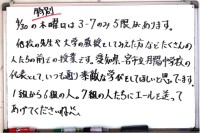 特別
9/30の木曜日は3-7のみ5限があります。
他校の先生や大学の教授としてみえた方などたくさんの
人たちの前での授業です。愛知県、一宮市立丹陽中学校の
代表として、いつも通り素敵な学びをしてほしいと思ってます。
1組から6組の人。7組の人たちにエールを送って
あげてくださいねぇ。